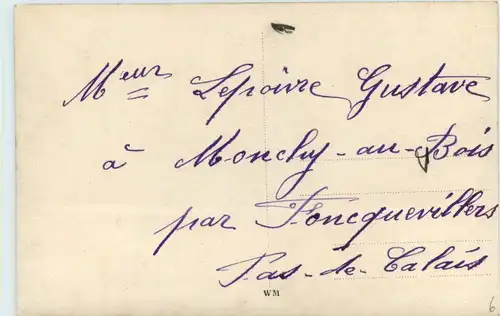 Meur Lepoivre Gustave
à Monchy-au-Bois
par Foncquevillers
Pas-de-Calais
WM
6